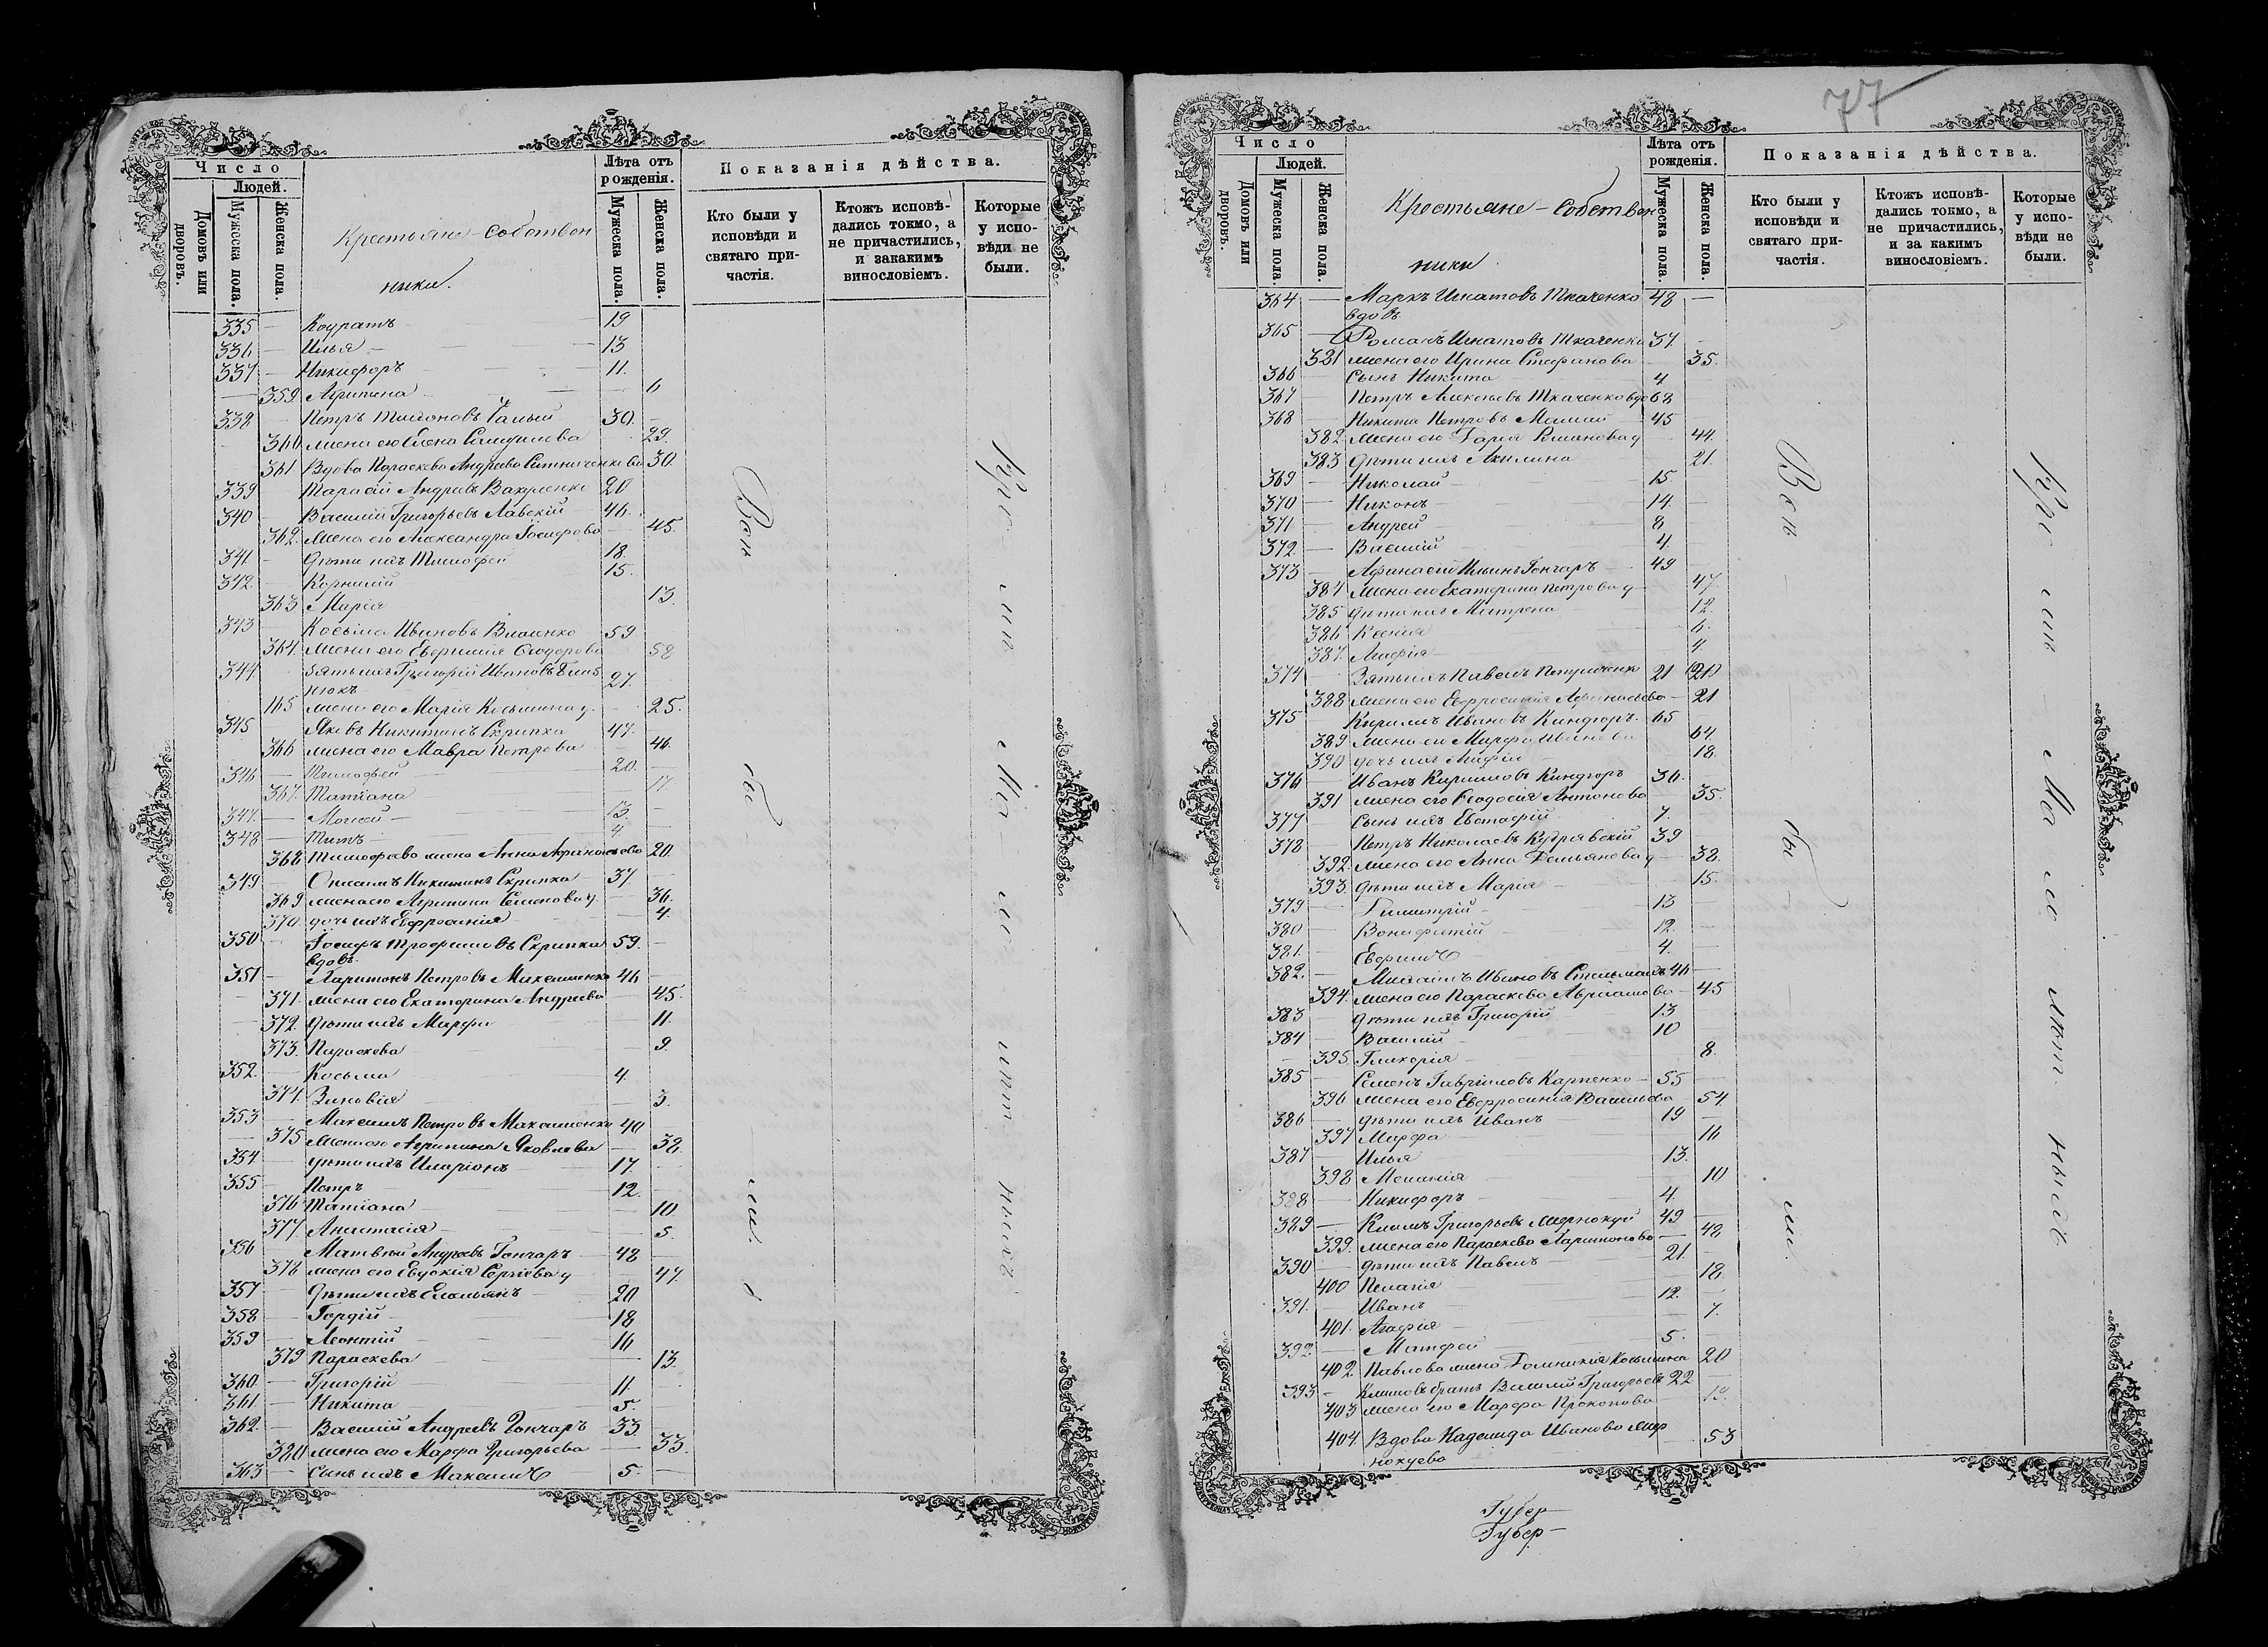 Число
Людей.
Домовъ или дворовъ.
Мужеска пола.
Женска пола.
Крестьяне-собствен
ники.
Лѣта отъ рожденія.
Мужеска пола.
Женска пола.
Показанія дѣйства.
Кто были у исповѣди и святаго причастія.
Ктожъ исповѣдались токмо, а не причастились, и закакимъ винословіемъ.
Которые у исповѣди не были.
335 — Кодратъ — 19
336 — Илья — 13
337 — Никифоръ — 11.
— 359 Агрипена — 6
338 — Петръ Галый 30. —
360 жена его Елена 29.
361 Вдова Параскева Андреева 30.
339 Тарасій Андреевъ 20
340 — Василій Григорьевъ Лавскій 46.
362. жена его Александра Іосифова 45.
341 — дѣти ихъ Тимофей 18.
342. — Корнилій 15.
363 Марія 13.
343 — Косьма Ивановъ Власенко 59
364. жена его Сидорова 58
344. зять ихъ Григорій Ивановъ 27.
нюкъ
165 жена его Марія Косьмина 25.
345 Яковъ Никитинъ Скрипка 47.
366 жена его Мавра Петрова 46.
346 — Тимофей 20. —
367. Татіана 17
347. — Моисей — 13. —
348 — Титъ 4.
368 Тимофеева жена Анна Афанасьева 20.
349 — Онисимъ Никитинъ Скрипка 37
369 жена его Агрипина Семенова 36.
370 дочь ихъ Евфросинія 4.
350 — Іосифъ Трофимовъ Скрипка 59. —
вдовъ.
351 — Харитонъ Петровъ Максименко 46 —
371. жена его Екатерина Андреева 45.
372. дѣти ихъ Марфа 11.
373. Параскева 9.
352. — Косьма 4.
374. Зиновія 3.
353 — Максимъ Петровъ Максименко 40
375 жена его Агрипина Яковлева 38
354 — дѣти ихъ Иларіонъ 17. —
355 — Петръ 12.
376 Татіана 10.
377. Анастасія 5.
356 — Матвѣй Андреевъ Гончаръ 48
378 жена его Евдокія Сергіева 47.
357 — дѣти ихъ Емельянъ 20
358 — Гордій 18
359 — Леонтій 16
379 Параскева 13.
360 — Григорій 11.
361 — Никита 5.
362. — Василій Андреевъ Гончаръ 33.
380 жена его Марфа Григорьева 33.
363 — сынъ ихъ Максимъ 5. —
Вси — бы — ли.
Кромѣ Малолѣтныхъ
77
Число
Людей.
Домовъ или дворовъ.
Мужеска пола.
Женска пола.
Крестьяне-собствен
ники
Лѣта отъ рожденія.
Мужеска пола.
Женска пола.
Показанія дѣйства.
Кто были у исповѣди и святаго причастія.
Ктожъ исповѣдались токмо, а не причастились, и за какимъ винословіемъ.
Которые у исповѣди не были.
364 — Маркъ Игнатовъ Ткаченко 48 —
вдовъ
365 — Романъ Игнатовъ Ткаченко 37. —
381 жена его Ирина Стефанова 35.
366 — сынъ Никита 4.
367 — Петръ Алексѣевъ Ткаченко вдо 68
368 — Никита Петровъ 45
382 жена его Дарія 44.
383 дѣти ихъ Акилина 21.
369 — Николай 15.
370 — Никонъ 14.
371 — Андрей 8
372. — Василій 4.
373 — Афанасій Ильинъ Гончаръ 49
384 жена его Екатерина Петрова 47
385 дѣти ихъ Матрена 12.
386 Ксенія 6.
387. Агафія 4.
374 — зять ихъ Павелъ Петриченко 21 (21)
388 жена его Евфросинія Афанасьева — 21
375 Кирилъ Ивановъ Киндюръ. 65
389 жена его Марфа Иванова 64.
390 дочь ихъ Агафія 18.
376 Иванъ Кириловъ Киндюръ 36. —
391 жена его Феодосія Антонова 35.
377 сынъ ихъ Евстафій 7.
378 — Петръ Николаевъ 39
392. жена его Анна Демьянова 38.
393. дѣти ихъ Марія 15.
379 — Димитрій 13
380 — Вонифатій 12.
381. Евфимъ 4.
382. — Михаилъ Ивановъ Стельмахъ 46 —
394. жена его Параскева Авраамова — 45
383 дѣти ихъ Григорій 13
384 — Василій 10
— 395. Гликерія 8.
385 — Семенъ Гавриловъ Карпенко — 55
396 жена его Евфросинія Васильева 54
386 — дѣти ихъ Иванъ 19
397 Марфа 16
387 — Илья 13.
398 Меланія 10
388 — Никифоръ 4.
389 — Климъ Григорьевъ 49
399. жена его Параскева Харитонова 48
390 — дѣти ихъ Павелъ 21.
400 Пелагія 18.
391. Иванъ 12.
401. Агафія 7.
392. — Матфей 5.
402 Павлова жена Домникія Косьмина 20
393 — Климовъ братъ Василій Григорьевъ 22
403 жена его Марфа Прокопова 19.
404. Вдова Надежда Иванова 53
Вси — бы — ли.
Кромѣ Малолѣтныхъ
Губер—
Губер—